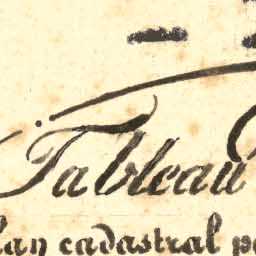 Tableau
lan cadastral p